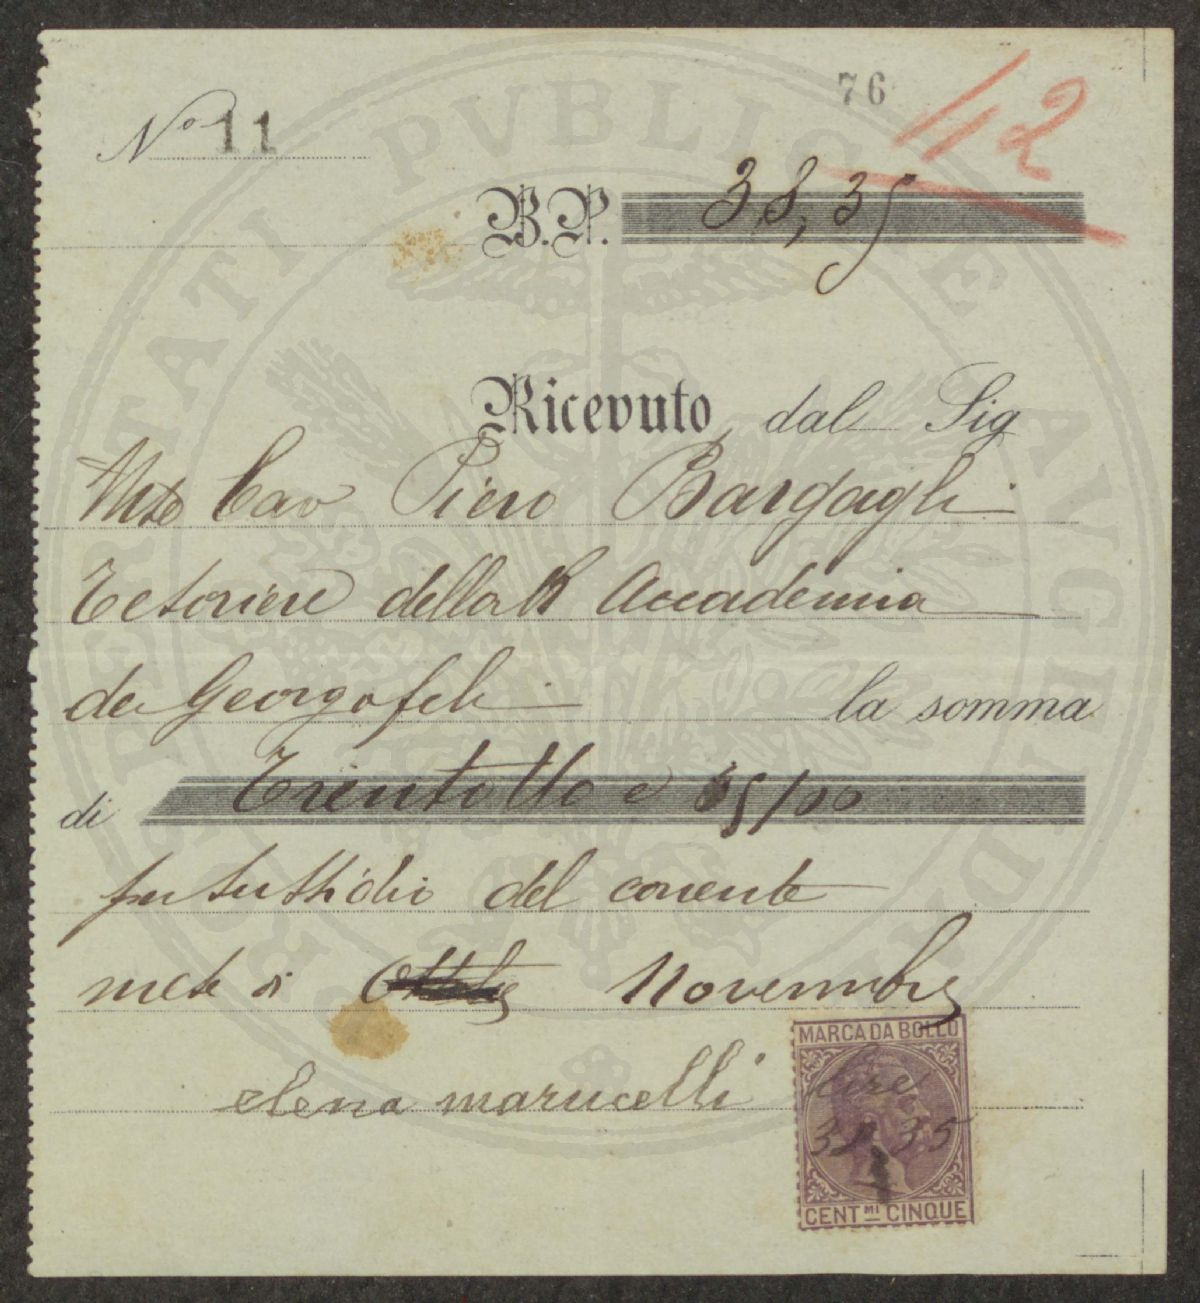 76
42
Nº 11
B.P. 38,35
Ricevuto dal Sig
Cav Piero Bargagli
Tesoriere della R Accademia
dei Georgofili la somma
di Trentotto e 35/00
per sussidio del corente
mese di Novembre
elena marucelli
MARCA DA BOLLO
lire
38 35
CENT.MI CINQUE
PROSPERITATI PVBLICAE AVGENDAE